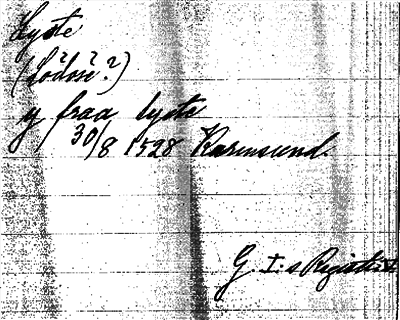 Lyste
(Lodose??)
y fraa lyste
30/8 1528 Karmsund.
G. I. s Registr.